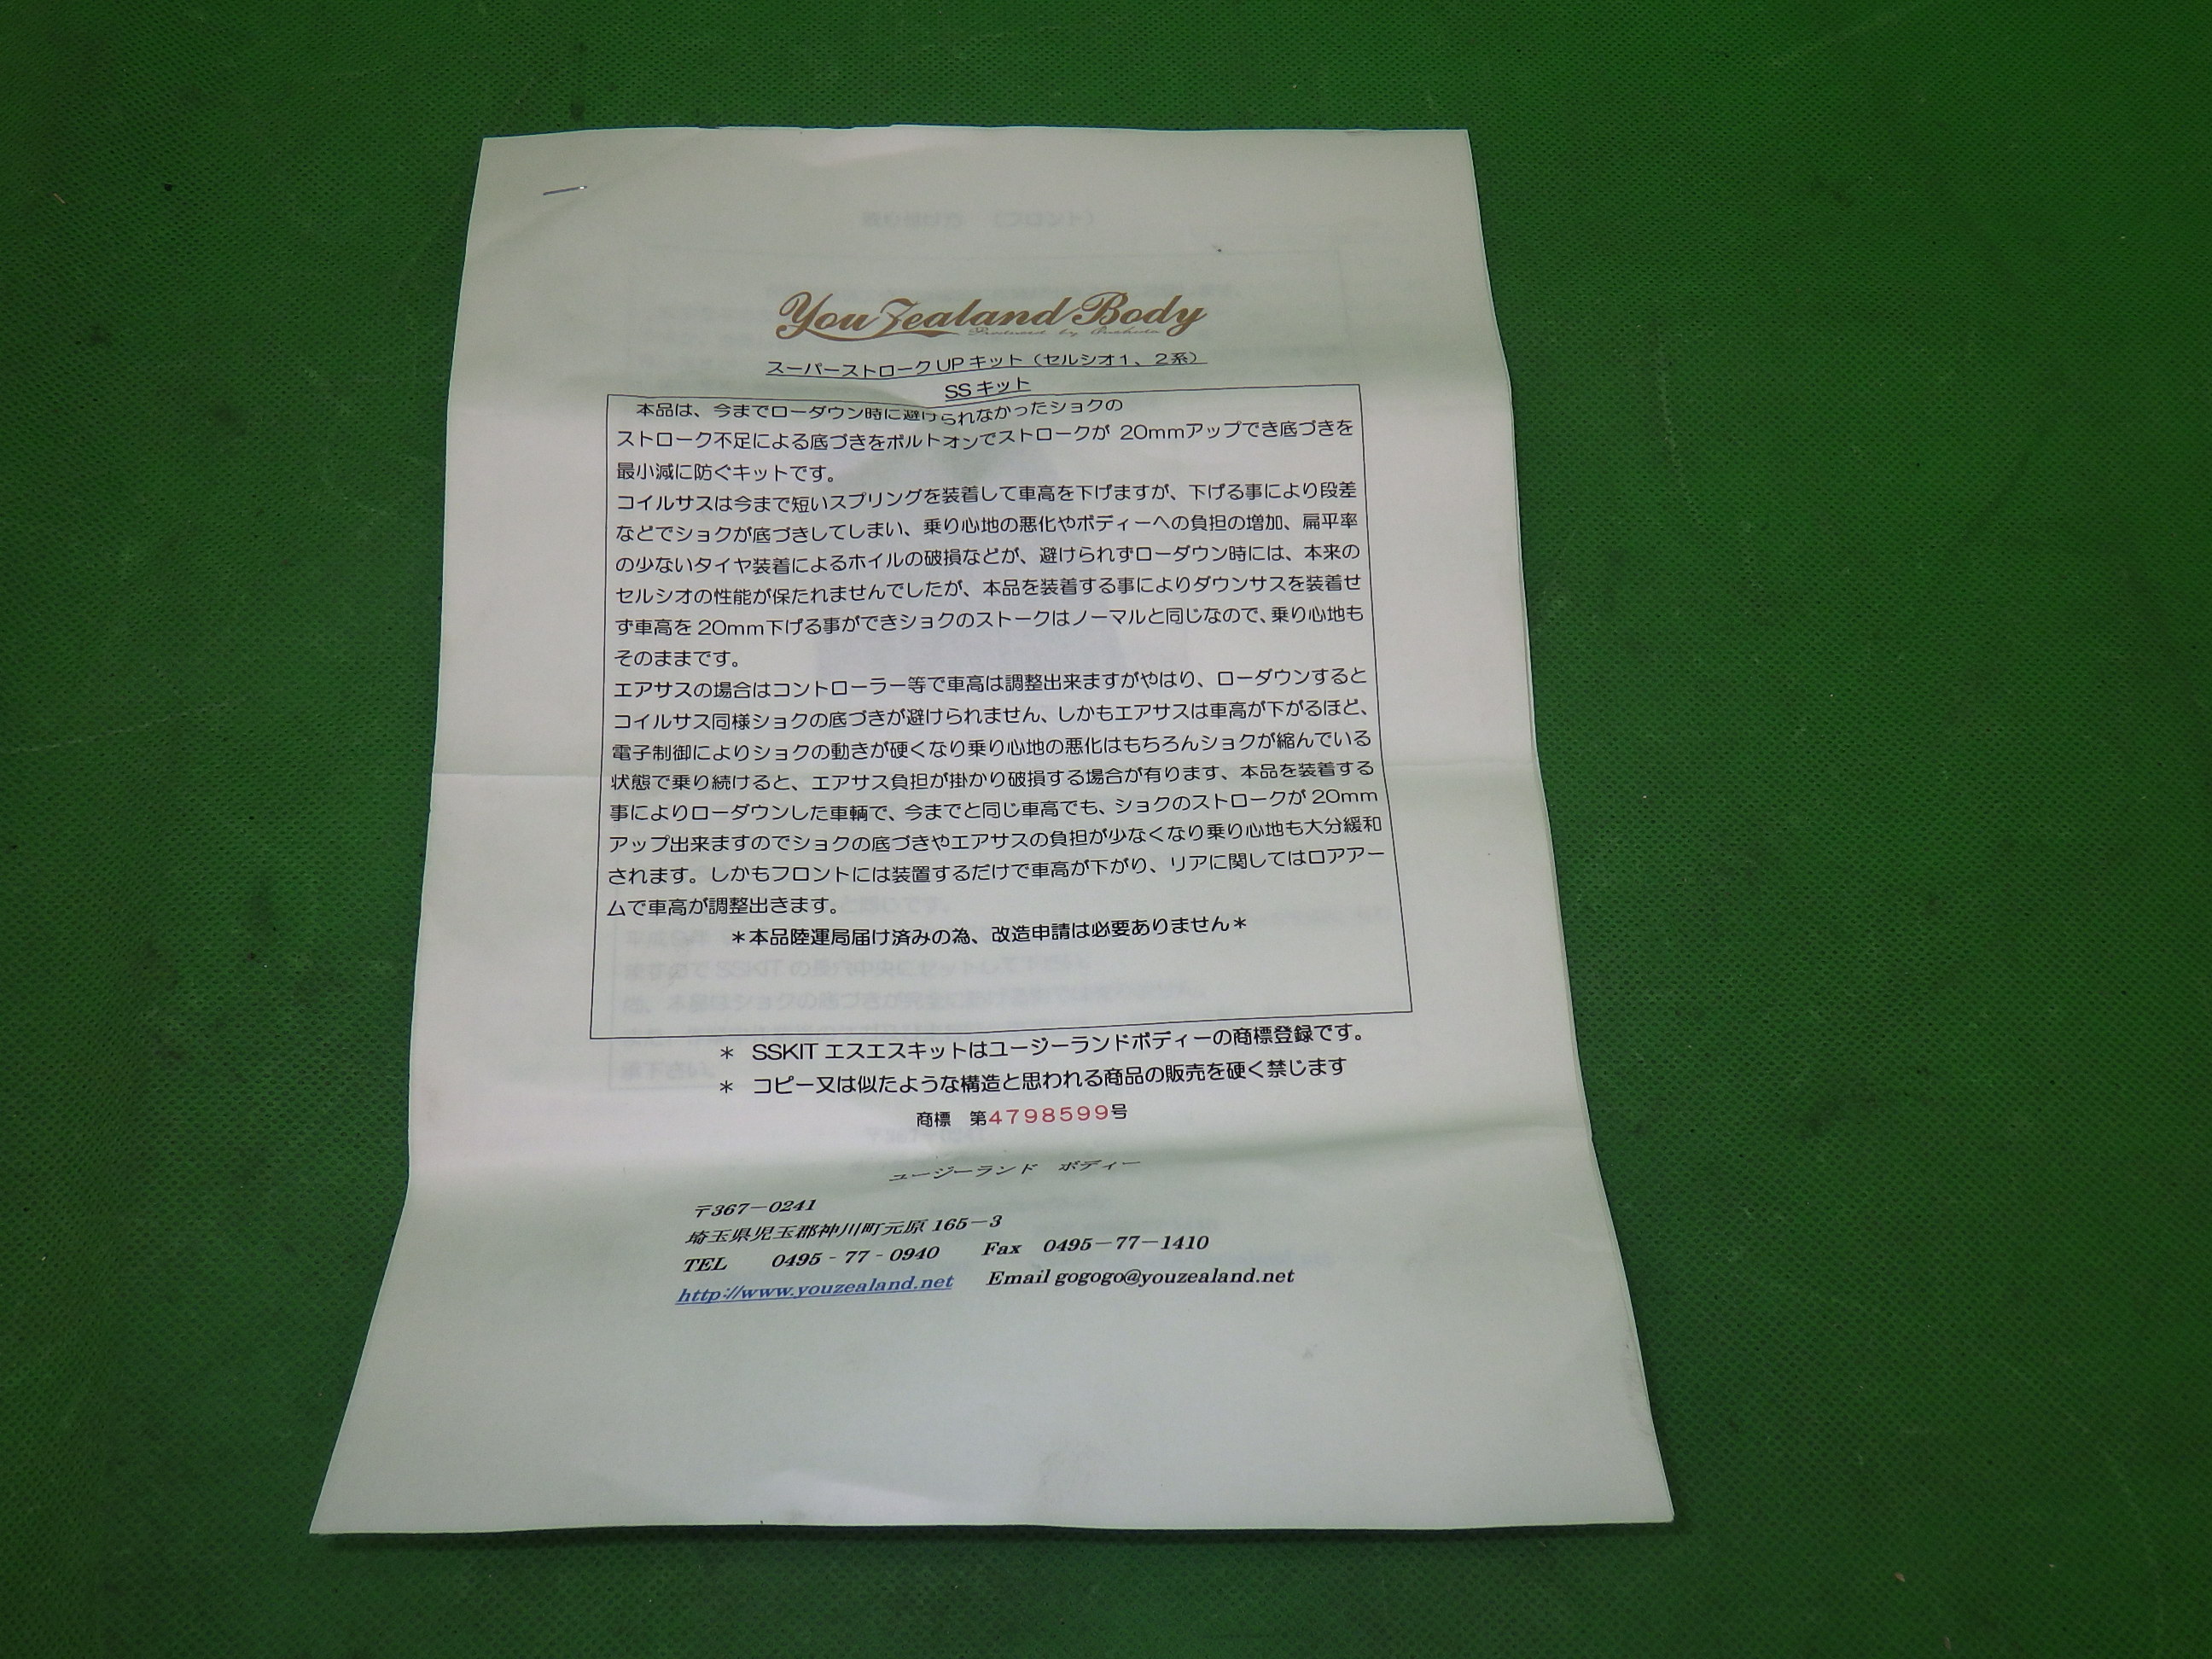 You Zealand Body
Produced by
スーパーストロークUPキット（セルシオ1、2系）
SSキット
本品は、今までローダウン時に避けられなかったショクの
ストローク不足による底づきをボルトオンでストロークが 20mmアップでき底づきを
最小減に防ぐキットです。
コイルサスは今まで短いスプリングを装着して車高を下げますが、下げる事により段差
などでショクが底づきしてしまい、乗り心地の悪化やボディーへの負担の増加、扁平率
の少ないタイヤ装着によるホイルの破損などが、避けられずローダウン時には、本来の
セルシオの性能が保たれませんでしたが、本品を装着する事によりダウンサスを装着せ
ず車高を 20mm下げる事ができショクのストークはノーマルと同じなので、乗り心地も
そのままです。
エアサスの場合はコントローラー等で車高は調整出来ますがやはり、ローダウンすると
コイルサス同様ショクの底づきが避けられません、しかもエアサスは車高が下がるほど、
電子制御によりショクの動きが硬くなり乗り心地の悪化はもちろんショクが縮んでいる
状態で乗り続けると、エアサス負担が掛かり破損する場合が有ります、本品を装着する
事によりローダウンした車輌で、今までと同じ車高でも、ショクのストロークが 20mm
アップ出来ますのでショクの底づきやエアサスの負担が少なくなり乗り心地も大分緩和
されます。しかもフロントには装置するだけで車高が下がり、リアに関してはロアアー
ムで車高が調整出きます。
＊本品陸運局届け済みの為、改造申請は必要ありません＊
＊ SSKIT エスエスキットはユージーランドボディーの商標登録です。
＊ コピー又は似たような構造と思われる商品の販売を硬く禁じます
商標 第4798599号
ユージーランド ボディー
〒367－0241
埼玉県児玉郡神川町元原 165－3
TEL 0495 - 77 - 0940 Fax 0495－77－1410
http://www.youzealand.net Email gogogo@youzealand.net